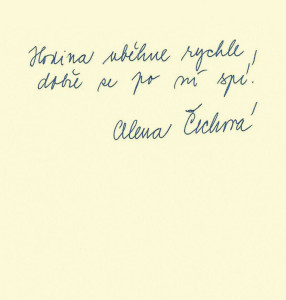 Hodina uběhne rychle,
dobře se po ní spí!
Alena Čechová